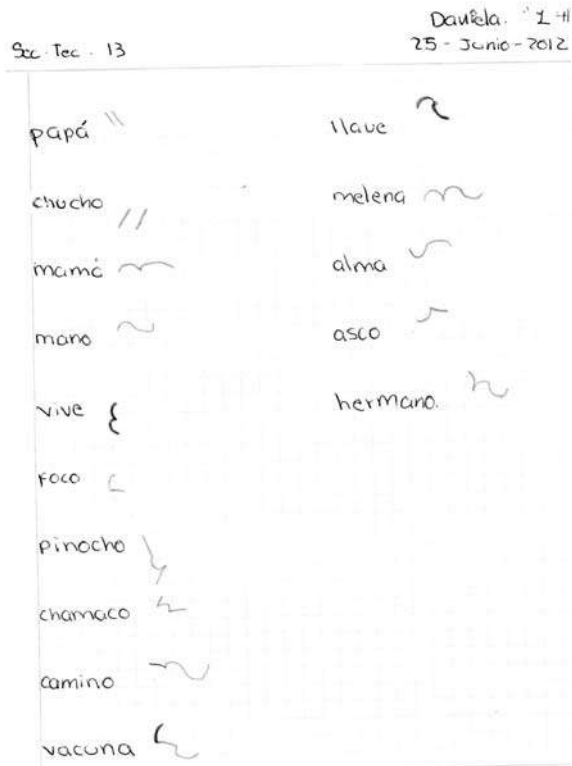 Daniela. 1-H
Sec. Tec. 13
25 - Junio - 2012
papá
chucho
mamá
mano
vive
foco
pinocho
chamaco
camino
vacuna
llave
melena
alma
asco
hermano.